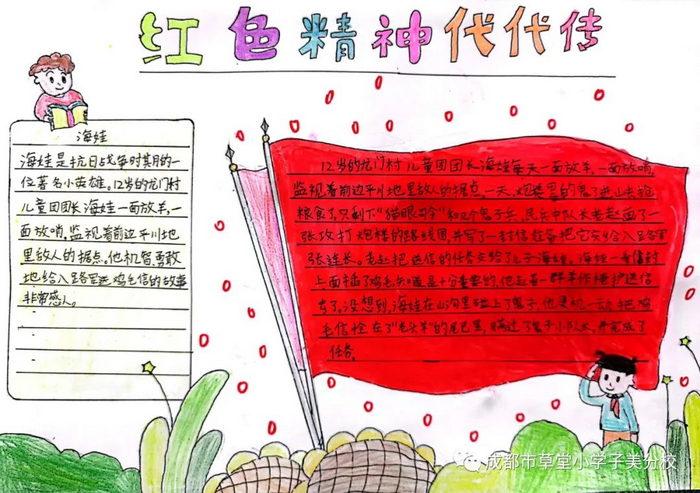 红色精神代代传
海娃
海娃是抗日战争时期的一
位著名小英雄。12岁的龙门村
儿童团团长海娃一面放羊,一
面放哨,监视着前边平川地
里敌人的据点。他机智勇敢
地给八路军送鸡毛信的故事
非常感人。
12岁的龙门村儿童团团长海娃每天一面放羊,一面放哨,
监视着前边平川地里敌人的据点。一天,炮楼里的鬼子进山去抢
粮食了,只剩下“猫眼司令”和几个鬼子兵,民兵中队长老赵画了一
张攻打炮楼的路线图,并写了一封信赶
张连长。老赵把送信的任务交给了儿子海娃。海娃一看信封
上面插了鸡毛,知道是十分重要的,他赶着一群羊作掩护送信
去了,没想到,海娃在山沟里碰上了鬼子,他灵机一动,把鸡
毛信拴在了“老头羊”的尾巴里,瞒过了鬼子小队长,并完成了
任务。
成都市草堂小学子美分校